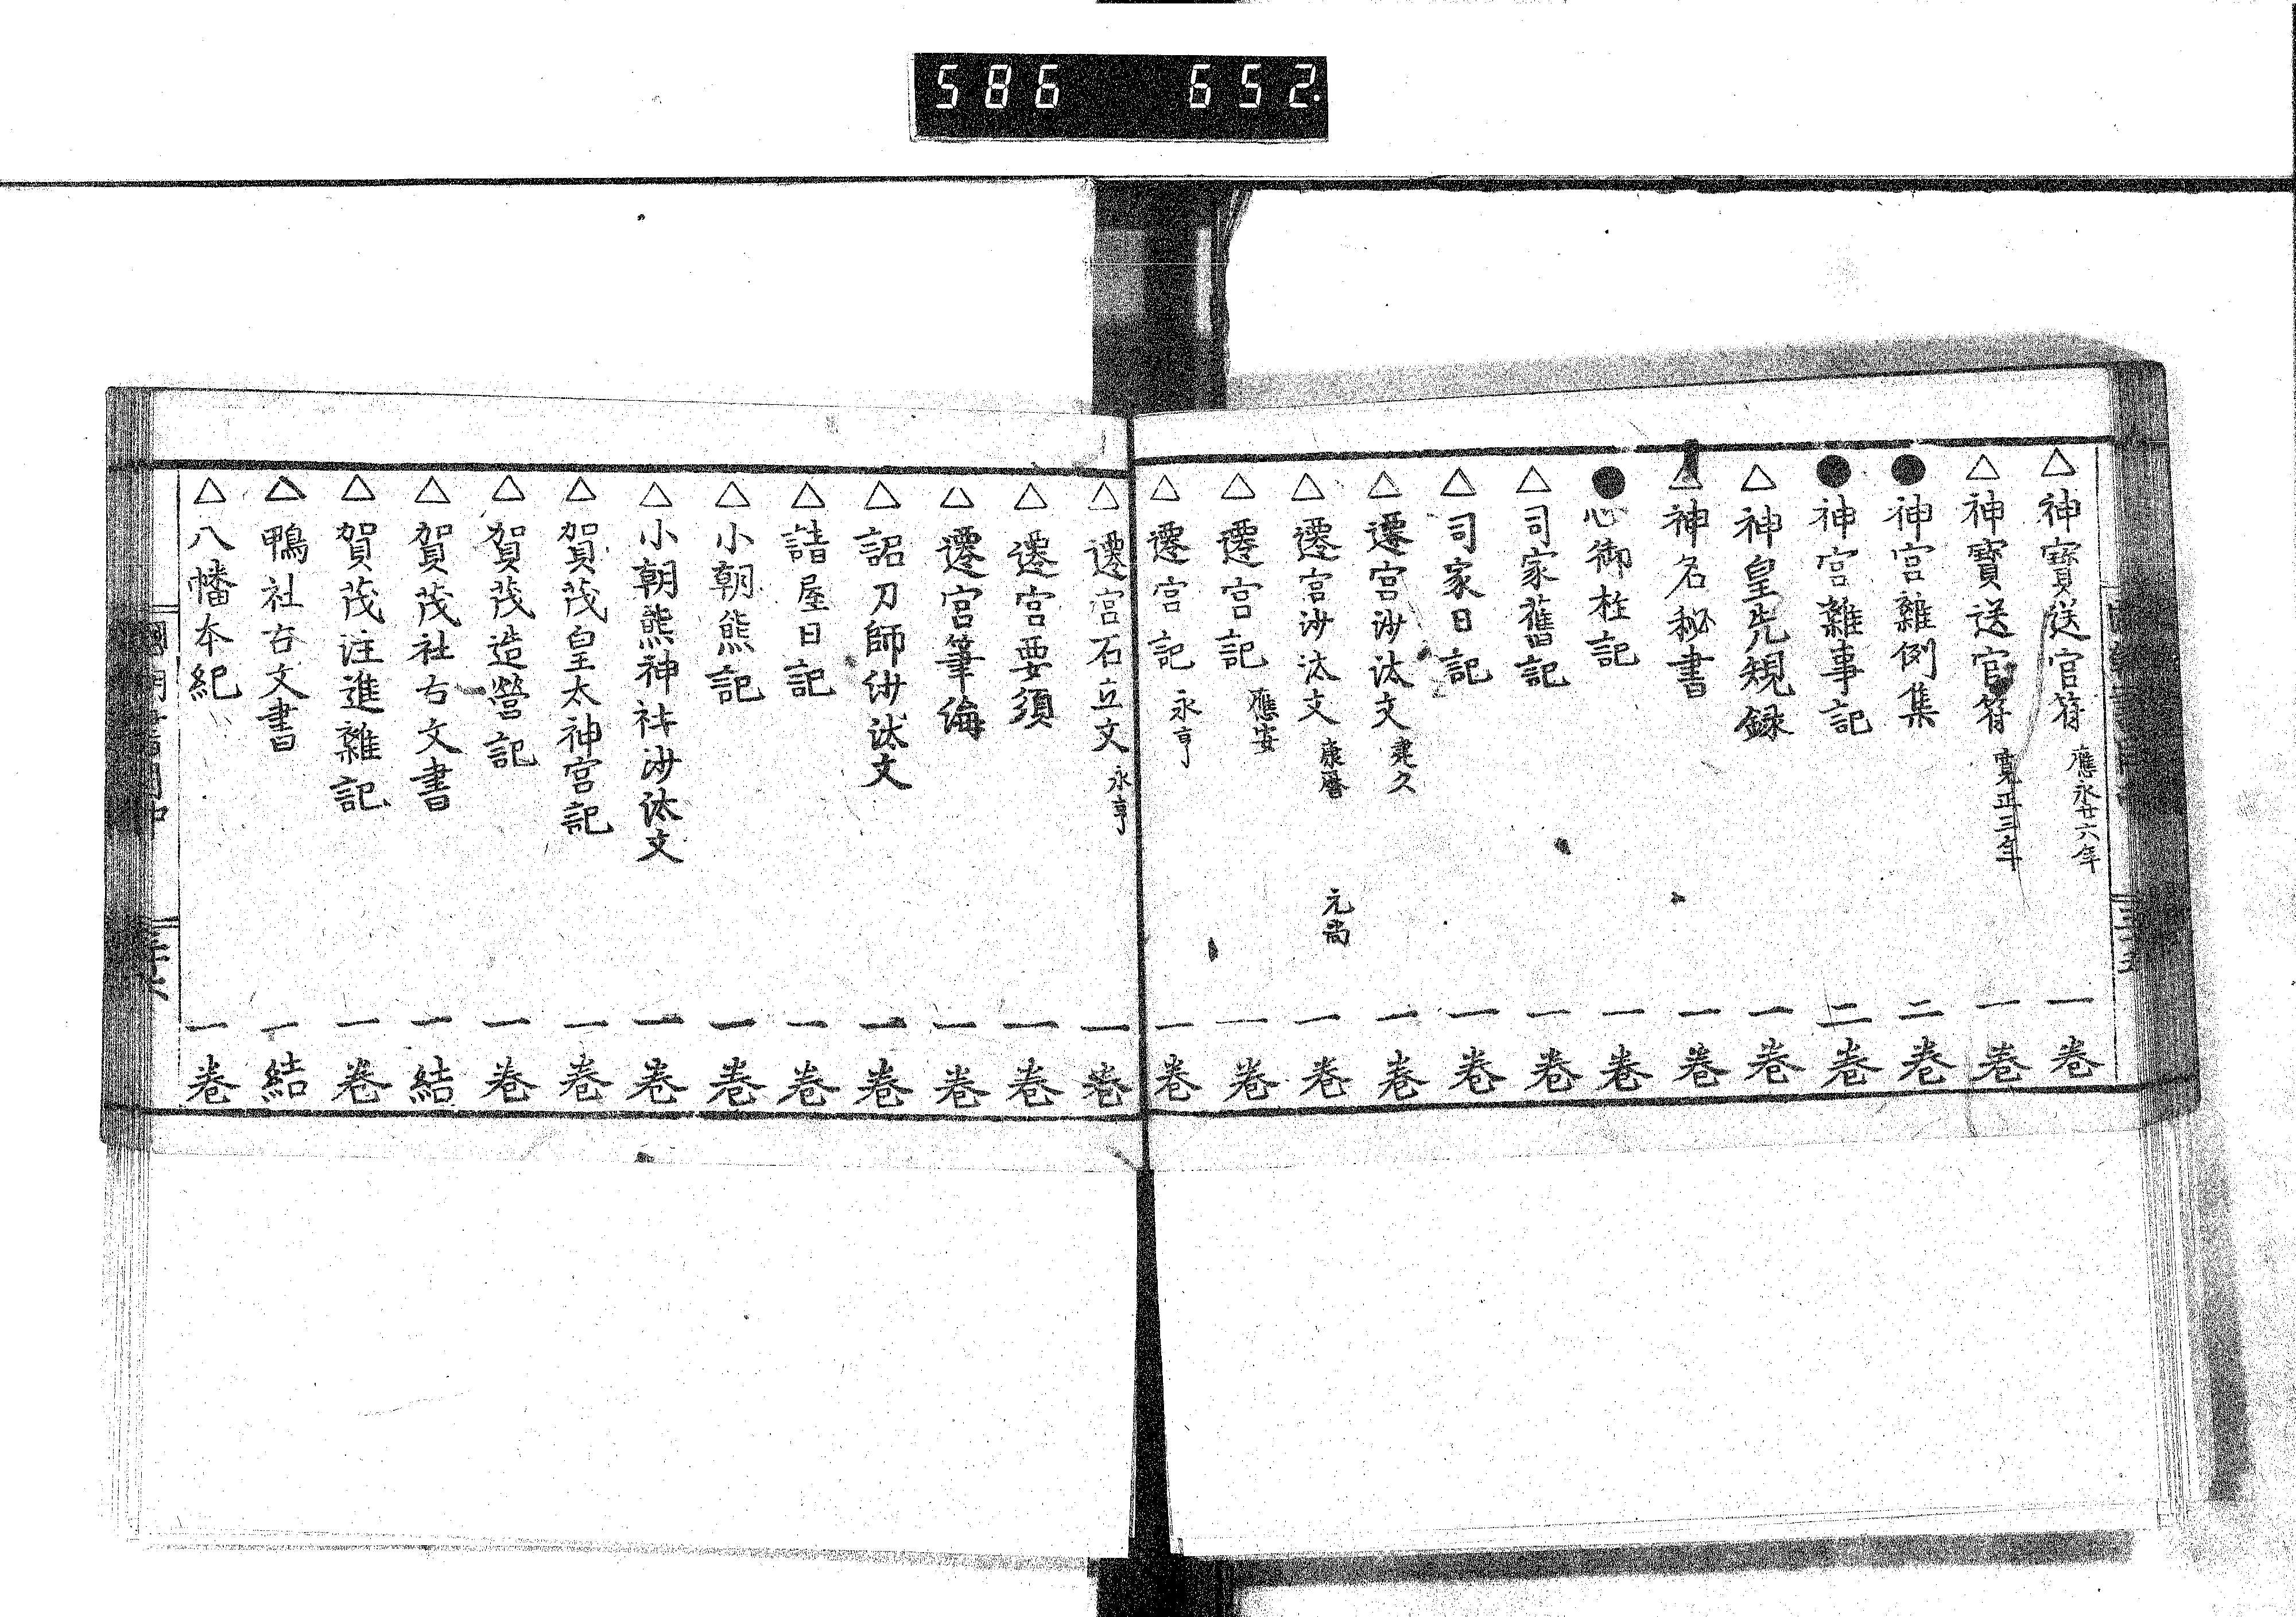 586 652.
△神寳送官符 應永廿六年 一卷
△神寳送官符 寛正三年 一卷
●神宮雜例集 二卷
●神宮雜事記 二卷
△神皇先規録 一卷
△神名秘書 一卷
●心御柱記 一卷
△司家舊記 一卷
△司家日記 一卷
△遷宮沙汰文 建久 一卷
△遷宮沙汰文 康曆 元尚 一卷
△遷宮記 應安 一卷
△遷宮記 永亨 一卷
△遷宮石立文 永亨 一卷
△遷宮要須 一卷
△遷宮筆海 一卷
△詔刀師沙汰文 一卷
△詰屋日記 一卷
△小朝熊記 一卷
△小朝熊神社沙汰文 一卷
△賀茂皇太神宮記 一卷
△賀茂造營記 一卷
△賀茂社古文書 一結
△賀茂注進雜記 一卷
△鴨社古文書 一結
△八幡本紀 一卷